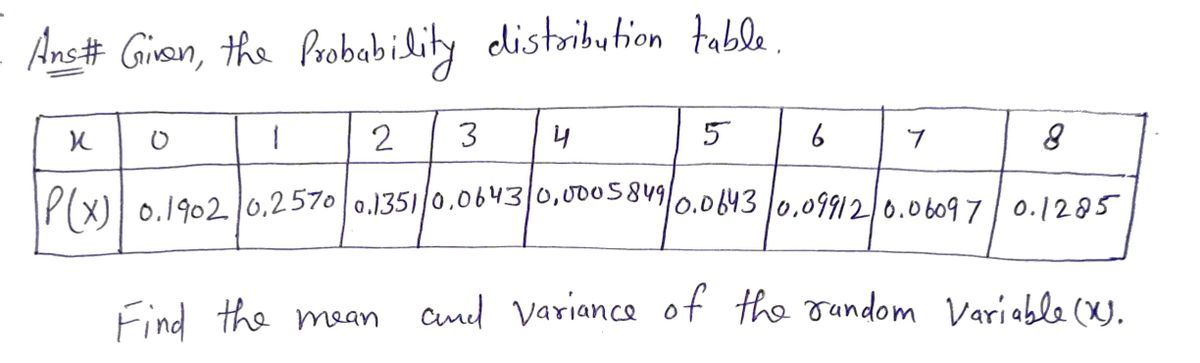 Ans# Given, the Probability distribution table.
x 0 1 2 3 4 5 6 7 8
P(X) 0.1902 0.2570 0.1351 0.0643 0.0005849 0.0643 0.09912 0.06097 0.1285
Find the mean and Variance of the random Variable (x).